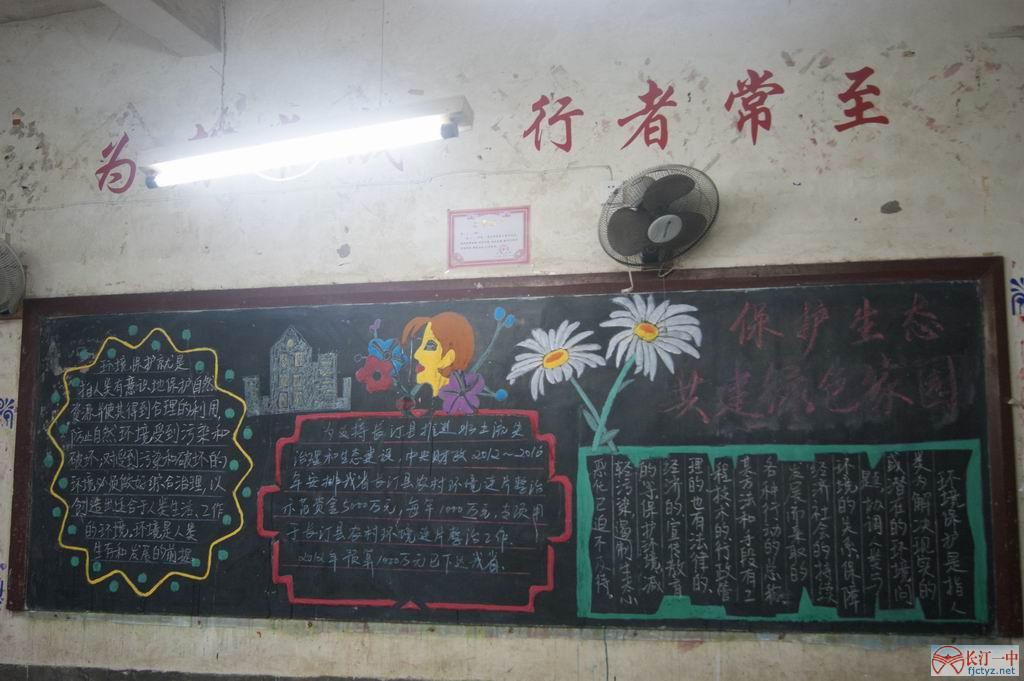 为
行者常至
保护生态
共建绿色家园
环境保护就是
指人类有意识地保护自然
资源并使其得到合理的利用,
防止自然环境受到污染和
破坏,对受到污染和破坏的
环境必须做好综合治理,以
创造出适合于人类生活、工作
的环境,环境是人类
生存和发展的前提
为支持长汀县推进水土流失
治理和生态建设,中央财政2012~2016
年安排我省长汀县农村环境连片整治
示范资金5000万元,每年1000万元,专项用
于长汀县农村环境连片整治工作。
2012年预算1000万元已下达我省。
环境保护是指人
类为解决现实的
或潜在的环境问
题,协调人类与
环境的关系,保障
经济社会的持续
发展而采取的
各种行动的总称
其方法和手段有工
程技术的、行政管
理的也有法律的、
经济的、宣传教育
的等。保护环境减
轻污染遏制生态
恶化已迫不及待,
长汀一中
fjctyz.net